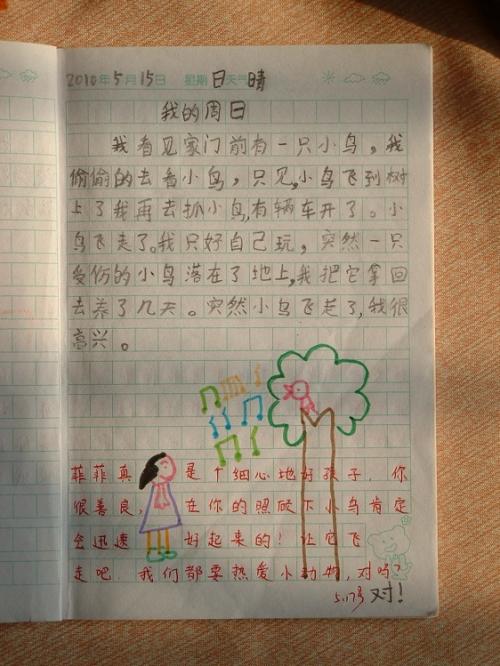 2010年5月15日 星期日天气晴
我的周日
我看见家门前有一只小鸟，我
偷偷的去看小鸟，只见，小鸟飞到树
上了我再去抓小鸟，有辆车开了。小
鸟飞走了。我只好自己玩，突然一只
受伤的小鸟落在了地上，我把它拿回
去养了几天。突然小鸟飞走了，我很
高兴。
菲菲真是个细心地好孩子，你
很善良，在你的照顾下小鸟肯定
会迅速好起来的！让它飞
走吧，我们都要热爱小动物，对吗？
5.17号 对！